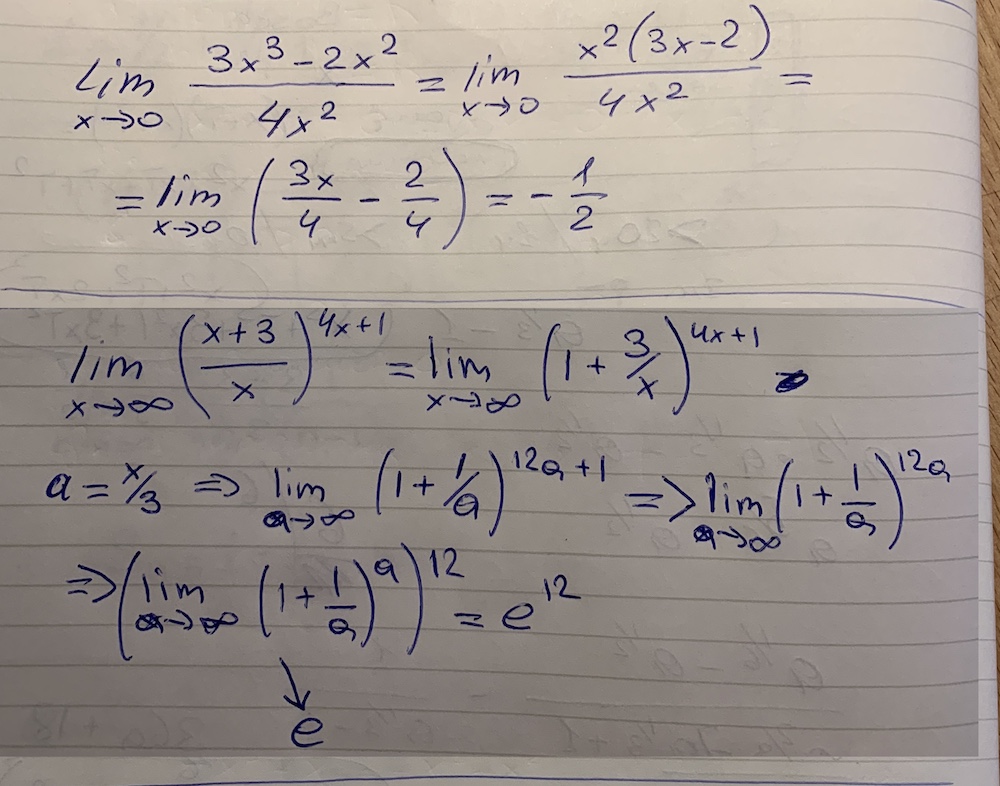 lim x→0 (3x³ - 2x²)/(4x²) = lim x→0 (x²(3x-2))/(4x²) =
= lim x→0 (3x/4 - 2/4) = - 1/2
lim x→∞ ((x+3)/x)^(4x+1) = lim x→∞ (1 + 3/x)^(4x+1)
a = x/3 ⇒ lim a→∞ (1 + 1/a)^(12a+1) => lim a→∞ (1 + 1/a)^(12a)
⇒ (lim a→∞ (1 + 1/a)^a)^12 = e^12
↓
e